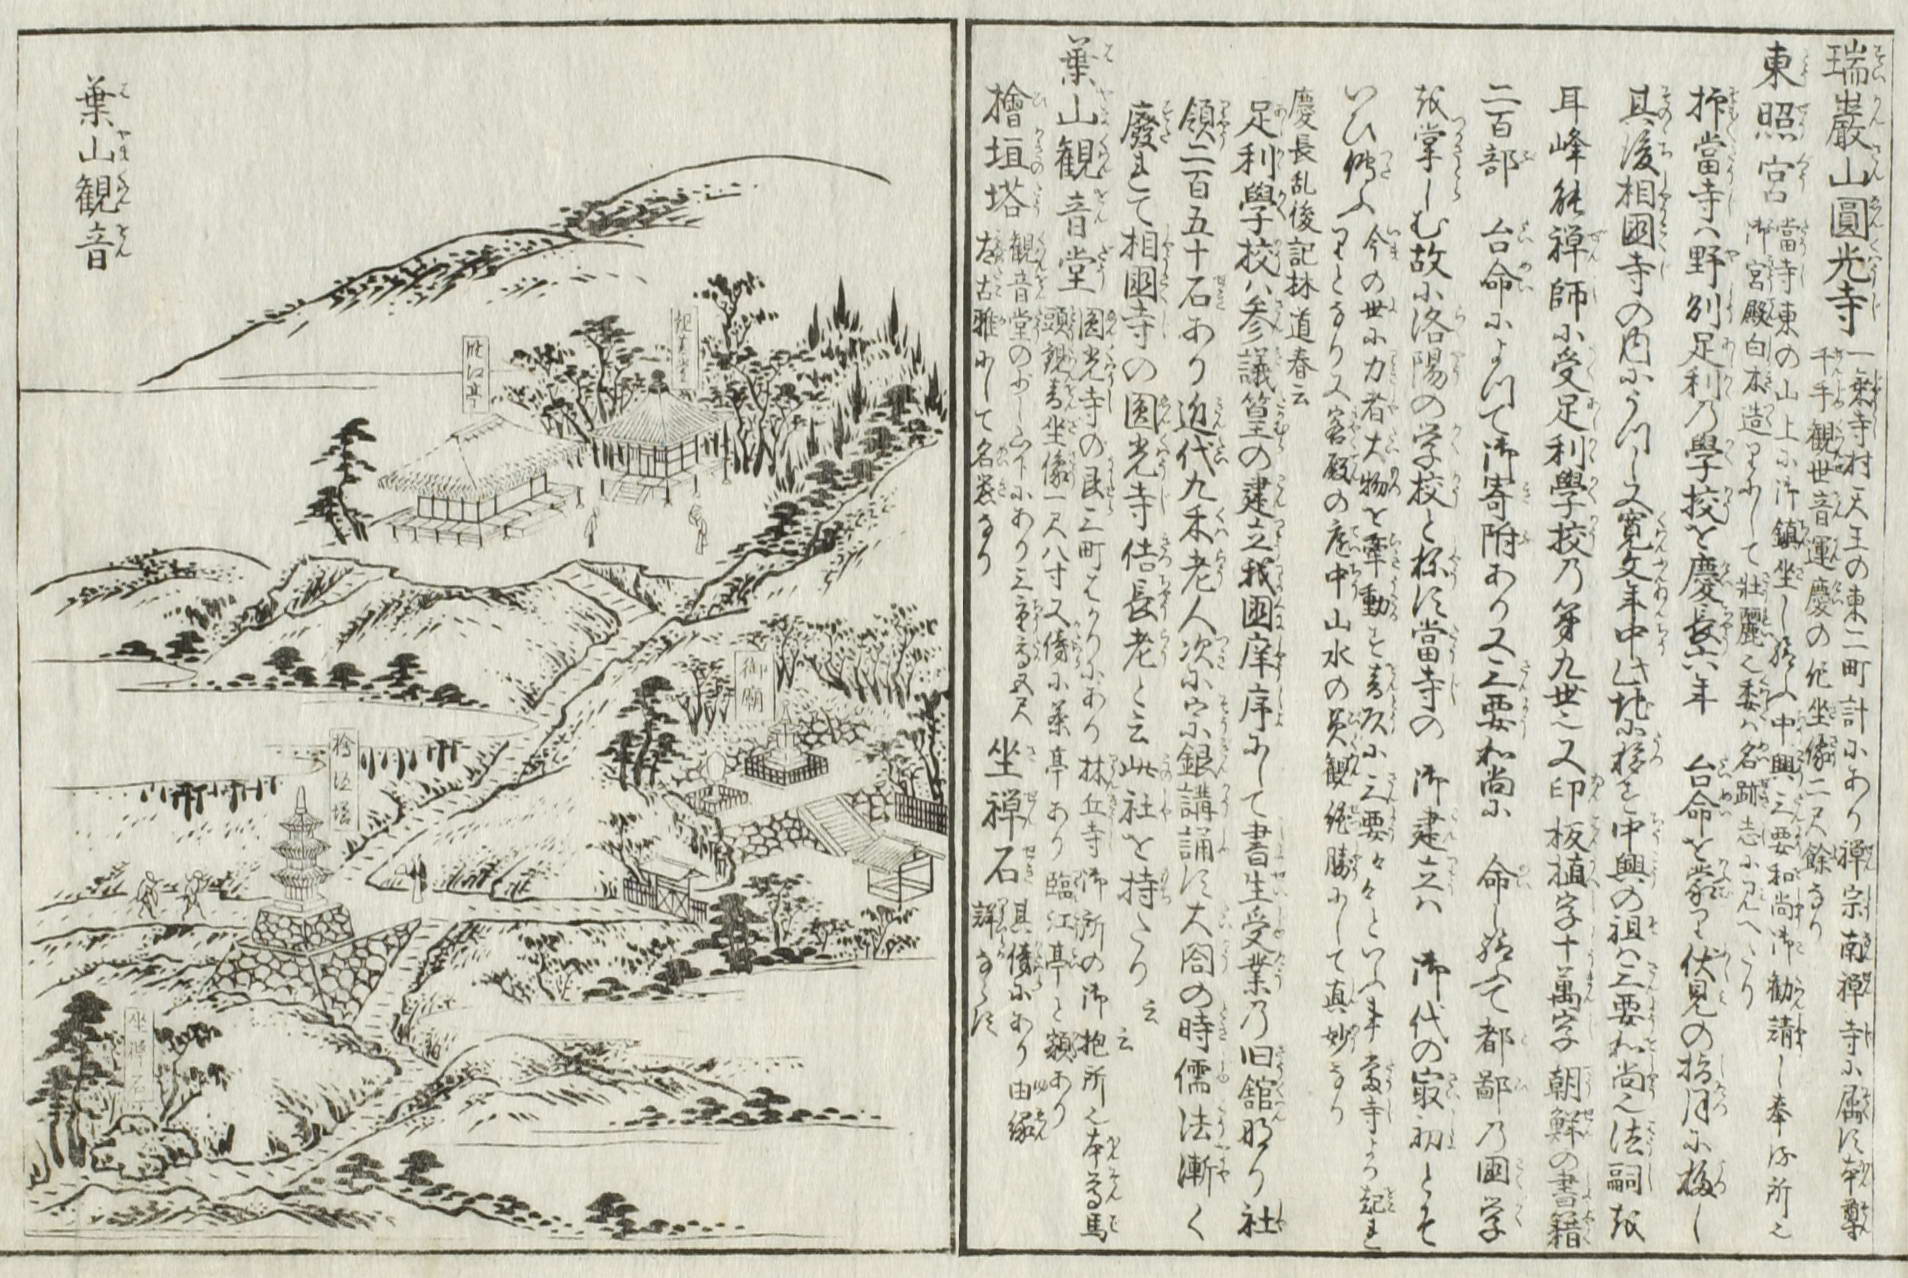 瑞巌山圓光寺 一乗寺村天王の東二町計にあり禅宗南禅寺に属す本尊
千手観世音運慶の作坐像二尺餘なり
東照宮 當寺東の山上に御鎮坐し給ふ中興三要和尚御勧請し奉る所也
御宮殿白木造りにして壮麗也委は名跡志に見へたり
抑當寺は野州足利の學校を慶長六年 台命を蒙り伏見の指月に移し
其後相國寺の内にうつし又寛文年中此地に移す中興の祖は三要和尚也法嗣
耳峰 禅師に受足利學校の第九世也又印板植字十萬字朝鮮の書籍
二百部 台命によつて御寄附あり又三要和尚に 命し給ひて都鄙の國学
を掌しむ故に洛陽の学校と称す當寺の 御建立は 御代の最初とそ
いひ傳ふ 今の世に力者大物を牽動すを音頭に三要々々といふ事當寺より起れ
りとなり又客殿の庭中山水の美観絶勝にして真妙なり
慶長乱後記林道春云
足利學校は参議篁の建立我國庠序にして書生受業の旧舘なり社
領二百五十石あり近代九禾老人次に宗銀講誦す大閤の時儒法漸く
廃れて相國寺の圓光寺佶長老と云此社を持たり云云
葉山観音堂 圓光寺の艮三町はかりにあり林丘寺御所の御抱所也本尊馬
頭観音坐像一尺八寸又傍に茶亭あり臨江亭と額あり
檜垣塔 観音堂のすこし下にあり三重高五尺
古雅にして名器なり
坐禅石 其傍にあり由縁
詳ならす
葉山観音
臨江亭
観音堂
御廟
檜垣塔
坐禅石